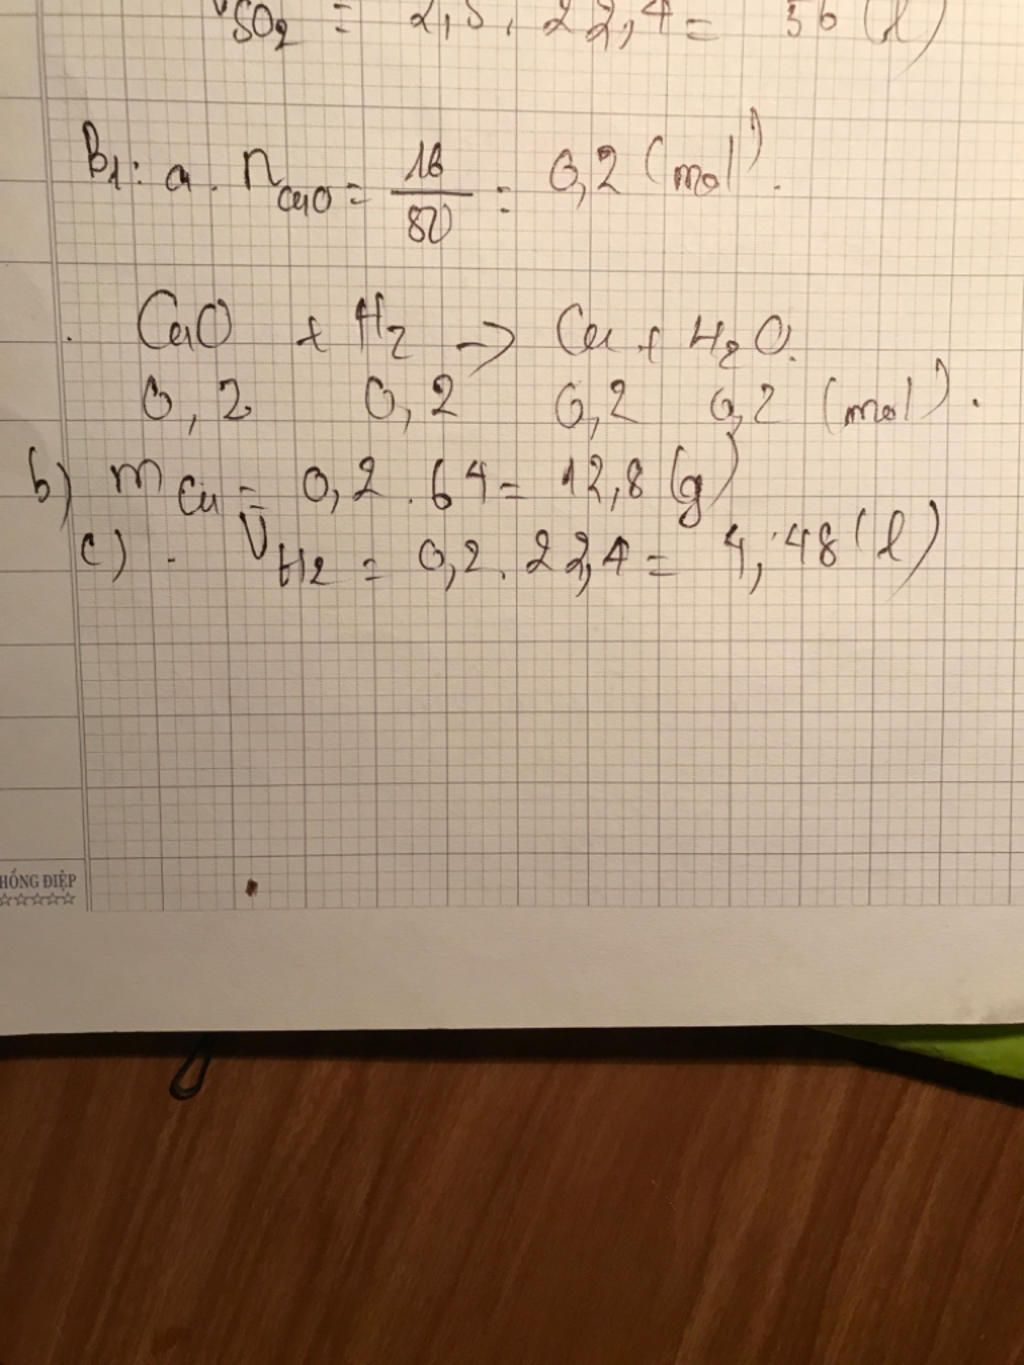 V SO2 = 2,5 . 22,4 = 56 (l)
B1: a. nCuO = 16/80 = 0,2 (mol).
. CuO + H2 -> Cu + H2O.
0,2 0,2 0,2 0,2 (mol).
b) mCu = 0,2 . 64 = 12,8 (g)
c) . VH2 = 0,2 . 22,4 = 4,48 (l)
HỒNG ĐIỆP
☆☆☆☆☆